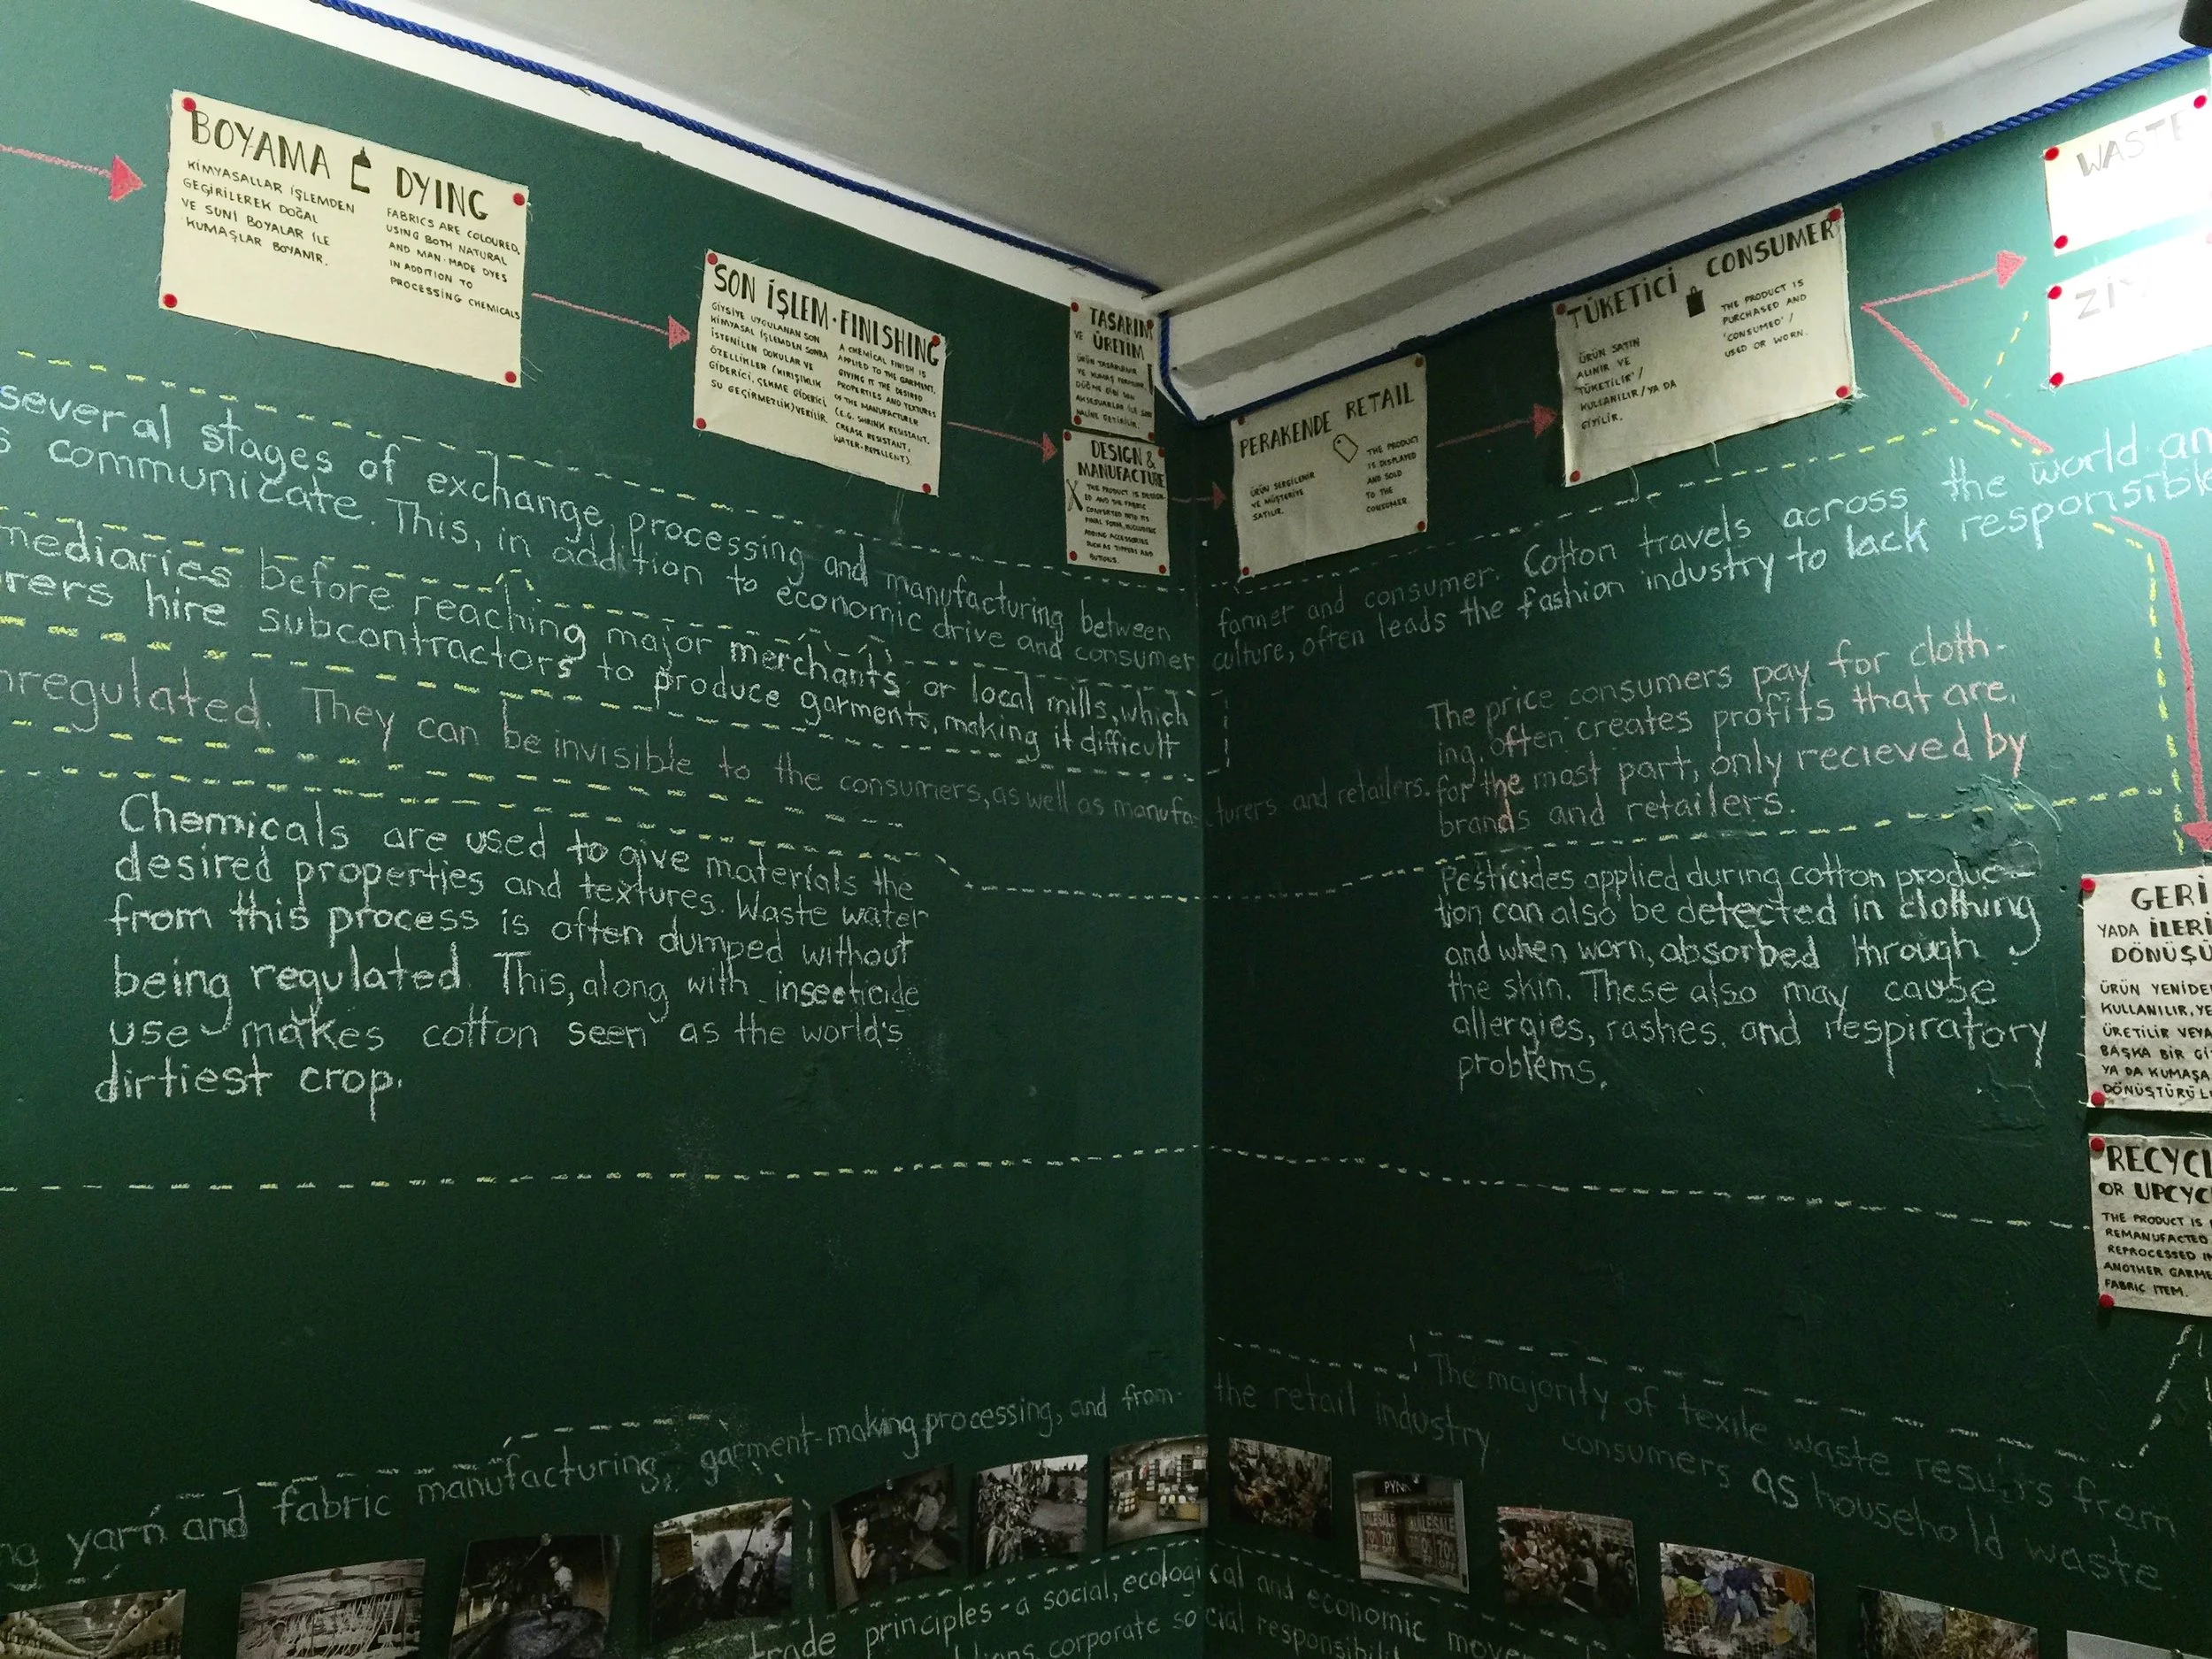 BOYAMA
KİMYASALLAR İŞLEMDEN
GEÇİRİLEREK DOĞAL
VE SUNİ BOYALAR İLE
KUMAŞLAR BOYANIR.
DYING
FABRICS ARE COLOURED,
USING BOTH NATURAL
AND MAN-MADE DYES
IN ADDITION TO
PROCESSING CHEMICALS
SON İŞLEM - FINISHING
GİYSİYE UYGULANAN SON
KİMYASAL İŞLEMDEN SONRA
İSTENİLEN DOKULAR VE
ÖZELLİKLER (KIRIŞIKLIK
GİDERİCİ, ÇEKME GİDERİCİ
SU GEÇİRMEZLİK) VERİLİR.
A CHEMICAL FINISH IS
APPLIED TO THE GARMENT,
GIVING IT THE DESIRED
PROPERTIES AND TEXTURES
OF THE MANUFACTURER
(E.G. SHRINK RESISTANT,
CREASE RESISTANT,
WATER-REPELLENT).
TASARIM
VE ÜRETİM
ÜRÜN TASARLANIR
VE KUMAŞ
DÜĞME GİBİ SON
AKSESUARLAR İLE SON
HALİNE GETİRİLİR.
DESIGN &
MANUFACTURE
THE PRODUCT IS DESIGN-
ED AND THE FABRIC
CONVERTED INTO ITS
FINAL FORM, INCLUDING
ADDING ACCESSORIES
SUCH AS ZIPPERS AND
BUTTONS.
PERAKENDE RETAIL
ÜRÜN SERGİLENİR
VE MÜŞTERİYE
SATILIR.
THE PRODUCT
IS DISPLAYED
AND SOLD
TO THE
CONSUMER.
TÜKETİCİ CONSUMER
ÜRÜN SATIN
ALINIR VE
'TÜKETİLİR' /
KULLANILIR / YA DA
GİYİLİR.
THE PRODUCT IS
PURCHASED AND
'CONSUMED' /
USED OR WORN.
WASTE
ZİY
several stages of exchange, processing and manufacturing between farmer and consumer. Cotton travels across the world an
s communicate. This, in addition to economic drive and consumer culture, often leads the fashion industry to lack responsible
mediaries before reaching major merchants or local mills, which
rers hire subcontractors to produce garments, making it difficult
nregulated. They can be invisible to the consumers, as well as manufacturers and retailers.
The price consumers pay for cloth-
ing, often creates profits that are,
for the most part, only recieved by
brands and retailers.
Chemicals are used to give materials the
desired properties and textures. Waste water
from this process is often dumped without
being regulated. This, along with insecticide
use makes cotton seen as the world's
dirtiest crop.
Pesticides applied during cotton produc-
tion can also be detected in clothing
and when worn, absorbed through
the skin. These also may cause
allergies, rashes, and respiratory
problems.
GERİ
YADA İLERİ
DÖNÜŞÜ
ÜRÜN YENİDE
KULLANILIR, YE
ÜRETİLİR VEYA
BAŞKA BİR Gİ
YA DA KUMAŞA
DÖNÜŞTÜRÜL
RECYCL
OR UPCYC
THE PRODUCT IS
REMANUFACTED
REPROCESSED IN
ANOTHER GARME
FABRIC ITEM.
ng yarn and fabric manufacturing, garment-making processing, and from the retail industry.
The majority of texile waste results from
consumers as household waste
trade principles - a social, ecological and economic move
corporate social responsibil